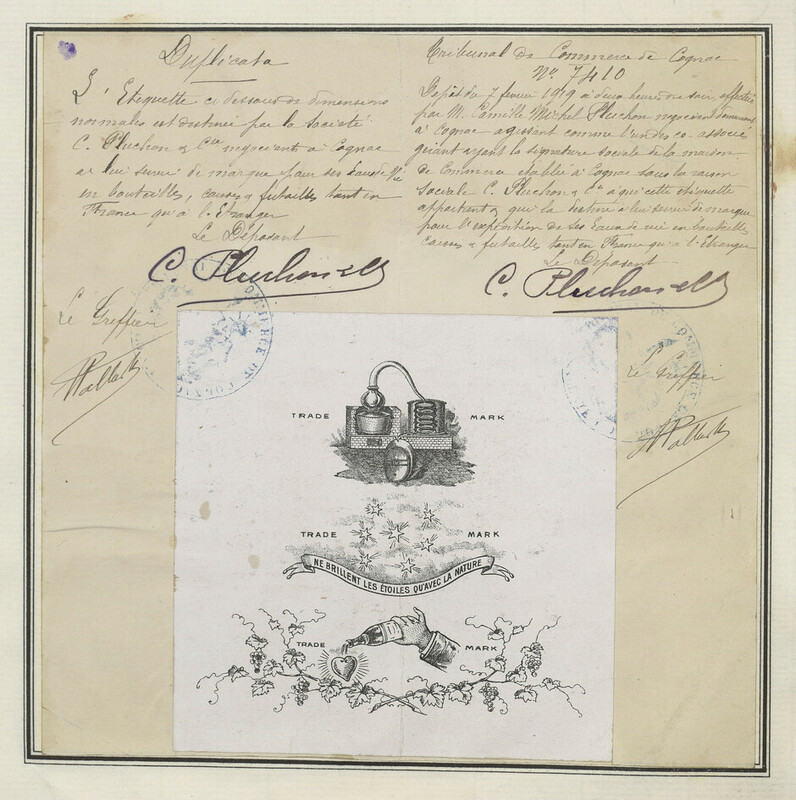 Duplicata
L'Etiquette ci dessous de dimensions
normales est destinée par la Société
C. Pluchon & Cie négociant à Cognac
à lui servir de marque pour ses Eaux de Vie
en bouteilles, caisses & futailles tant en
France qu'à l'Etranger
Le Déposant
C. Pluchon & Cie
Le Greffier
Tribunal de Commerce de Cognac
No. 7410
Dépôt du 7 février 1919 à deux heures du soir, effectué
par M. Camille Michel Pluchon négociant demeurant
à Cognac agissant comme l'un des co-associé
gérant ayant la signature sociale de la maison
de Commerce établie à Cognac sous la raison
Sociale C. Pluchon & Cie à qui cette étiquette
appartient & qui la destine à lui servir de marque
pour l'expédition de ses eaux de vie en bouteilles
caisses & futailles tant en France qu'à l'Etranger
Le Déposant
C. Pluchon & Cie
Le Greffier
TRADE MARK
TRADE MARK
NE BRILLENT LES ÉTOILES QU'AVEC LA NATURE
TRADE MARK